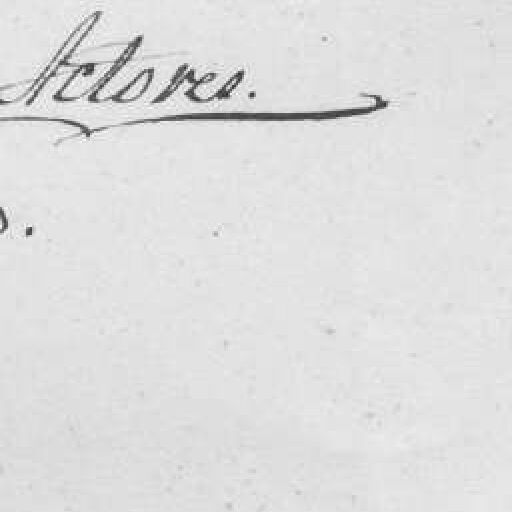 Actores.
s.